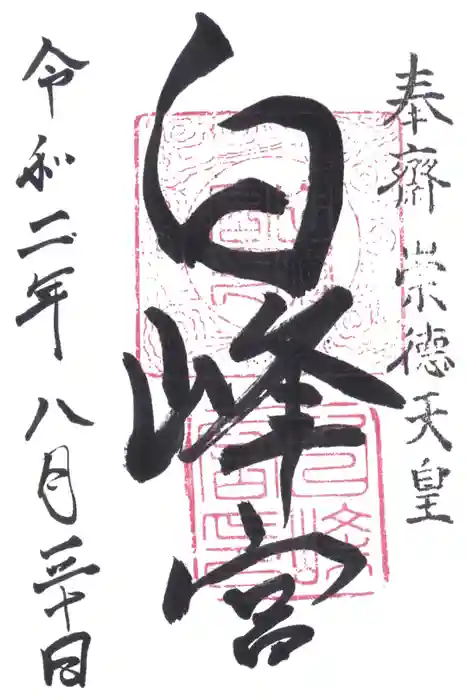 奉齋 崇德天皇
白峰宮
令和二年 八月三十日